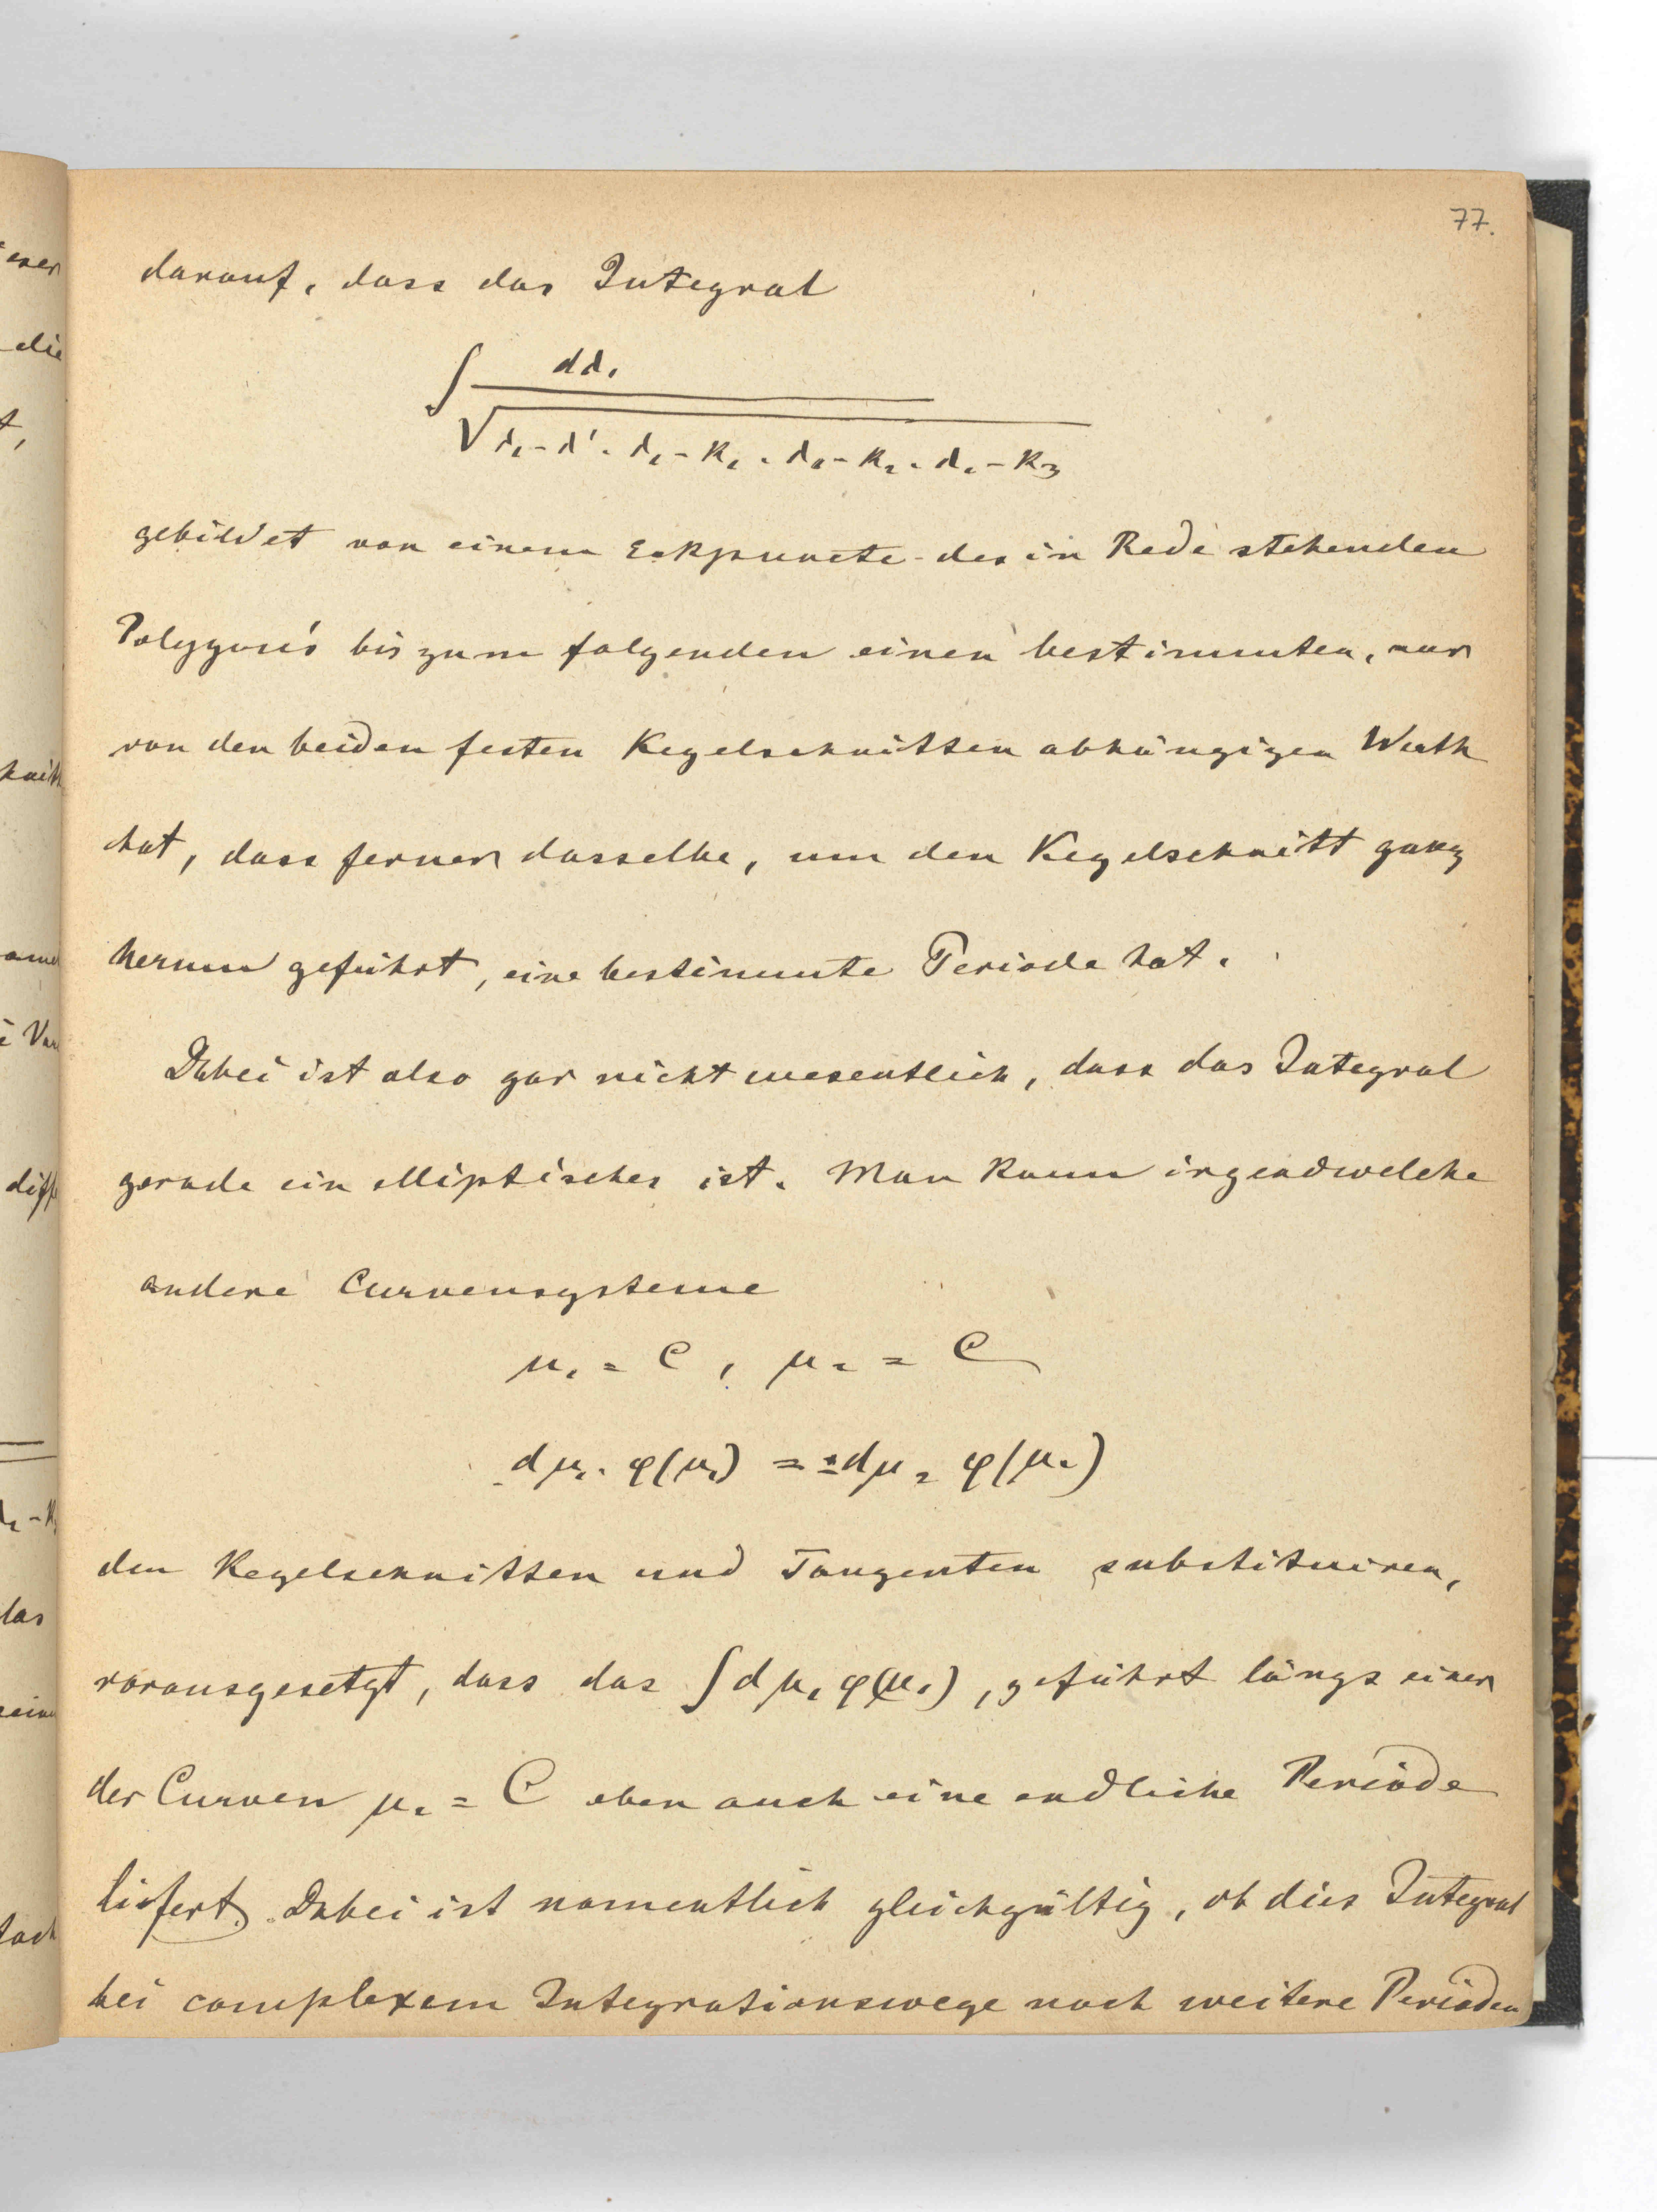 77.
darauf, dass das Integral
∫ dλ₁ / √(λ₁-λ' . λ₁-k₁ . λ₁-k₂ . λ₁-k₃)
gebildet von einem Eckpuncte des in Rede stehenden
Polygon's bis zum folgenden einen bestimmten, nur
von den beiden festen Kegelschnitten abhängigen Werth
hat, dass ferner dasselbe, um den Kegelschnitt ganz
herum geführt, eine bestimmte Periode hat.
Dabei ist also gar nicht wesentlich, dass das Integral
gerade ein elliptisches ist. Man kann irgendwelche
andere Curvensysteme
μ₁ = C, μ₂ = C
dμ₁ . φ(μ₁) = ± dμ₂ φ(μ₂)
den Kegelschnitten und Tangenten substituiren,
vorausgesetzt, dass das ∫dμ₁ φ(μ₁), geführt längs einer
der Curven μ₂ = C eben auch eine endliche Periode
liefert. Dabei ist namentlich gleichgültig, ob dies Integral
bei complexem Integrationswege noch weitere Perioden